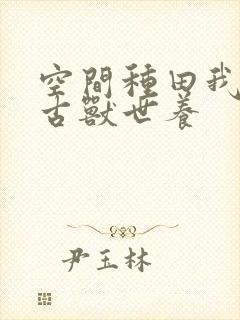 空間種田我
古獸世養
尹玉林